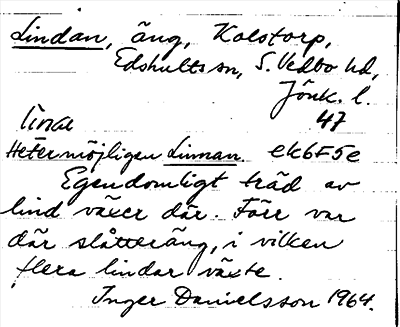 Lindan, äng, Kolstorp,
Edshults sn, S. Vedbo hd,
Jönk. l.
linα 47
Heter möjligen Linnan. ek6F5e
Egendomligt träd av
lind växer där. Förr var
där slåtteräng, i vilken
flera lindar växte.
Inger Danielsson 1964.